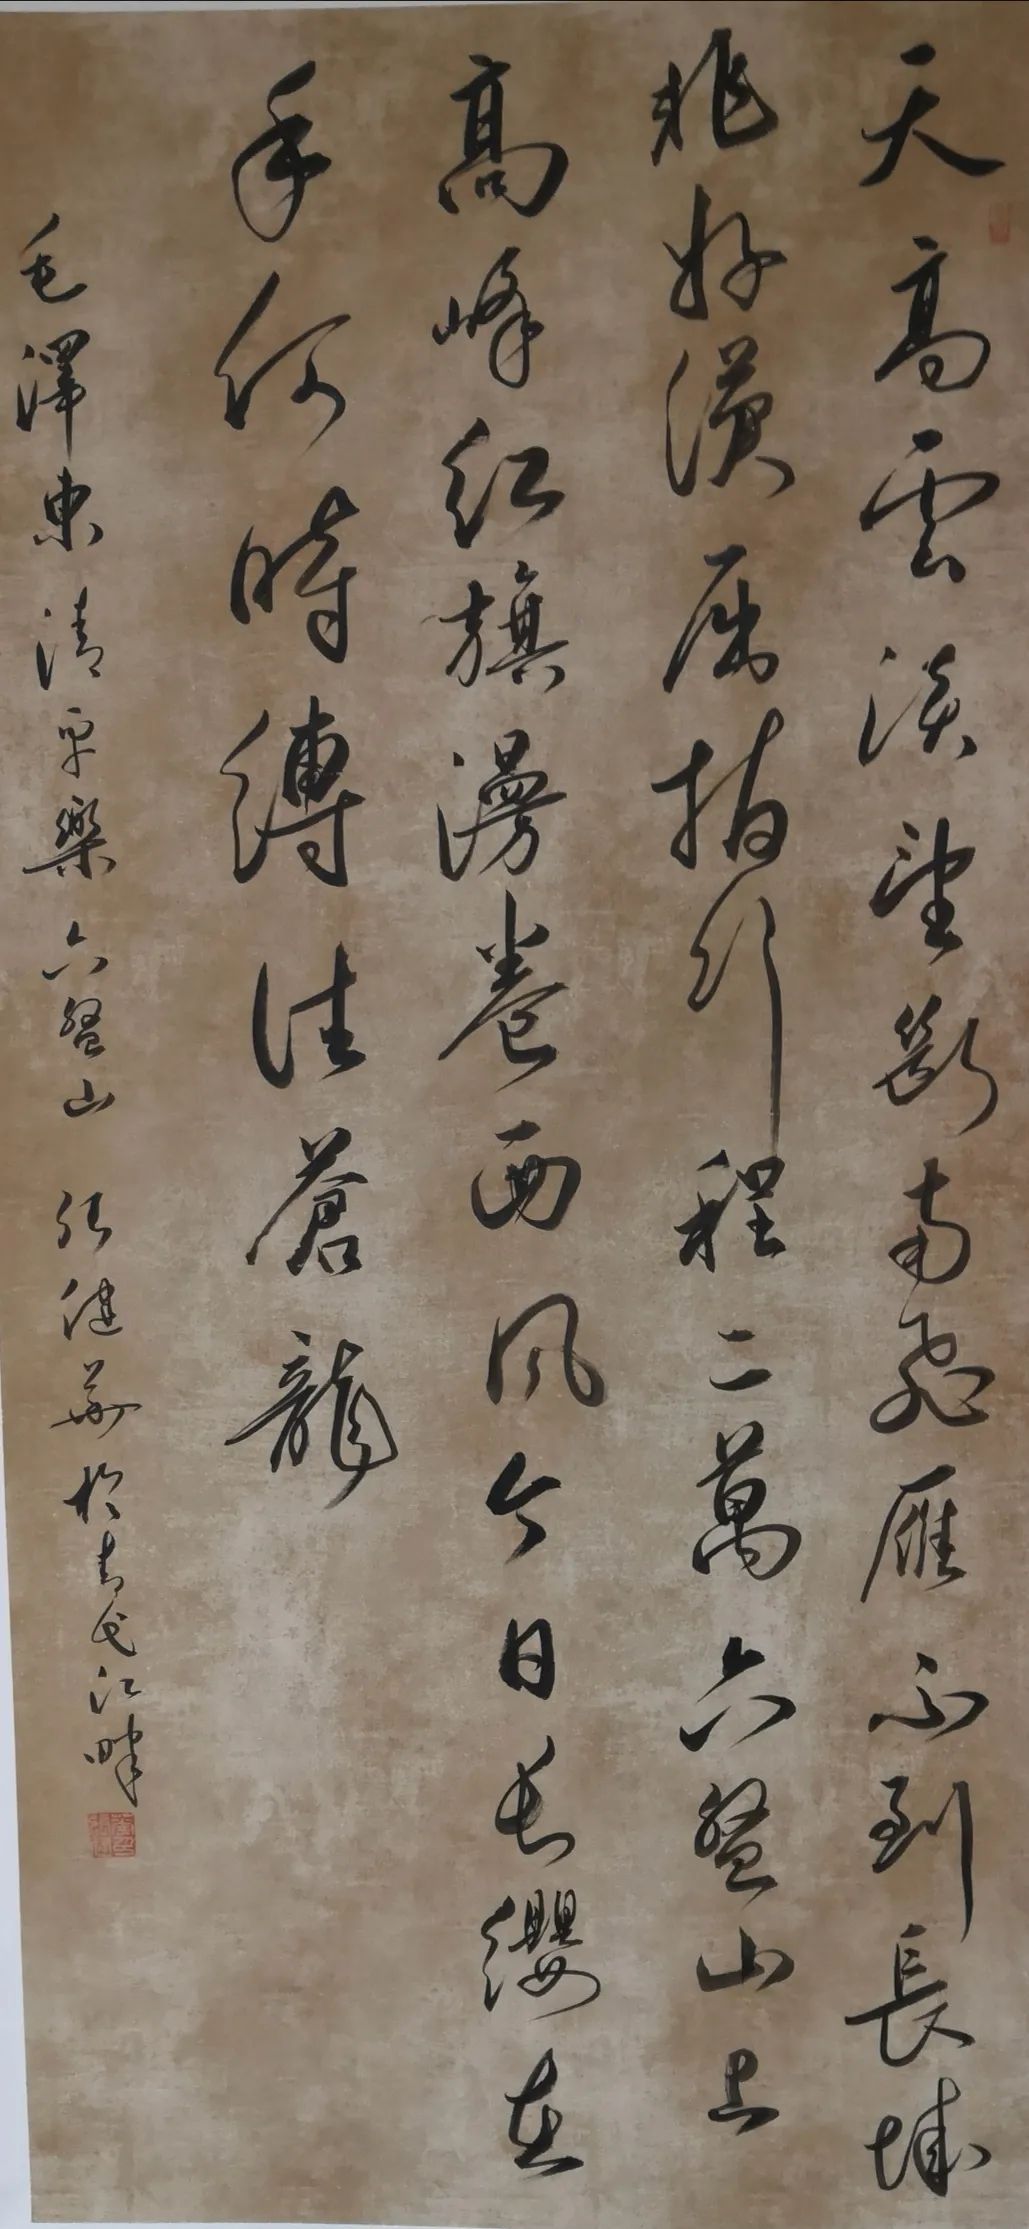 天高雲淡望斷南飛雁不到長城
非好漢屈指行程二萬六盤山上
高峰紅旗漫卷西風今日長纓在
手何時縛住蒼龍
毛澤東清平樂六盤山 張健華於青弋江畔